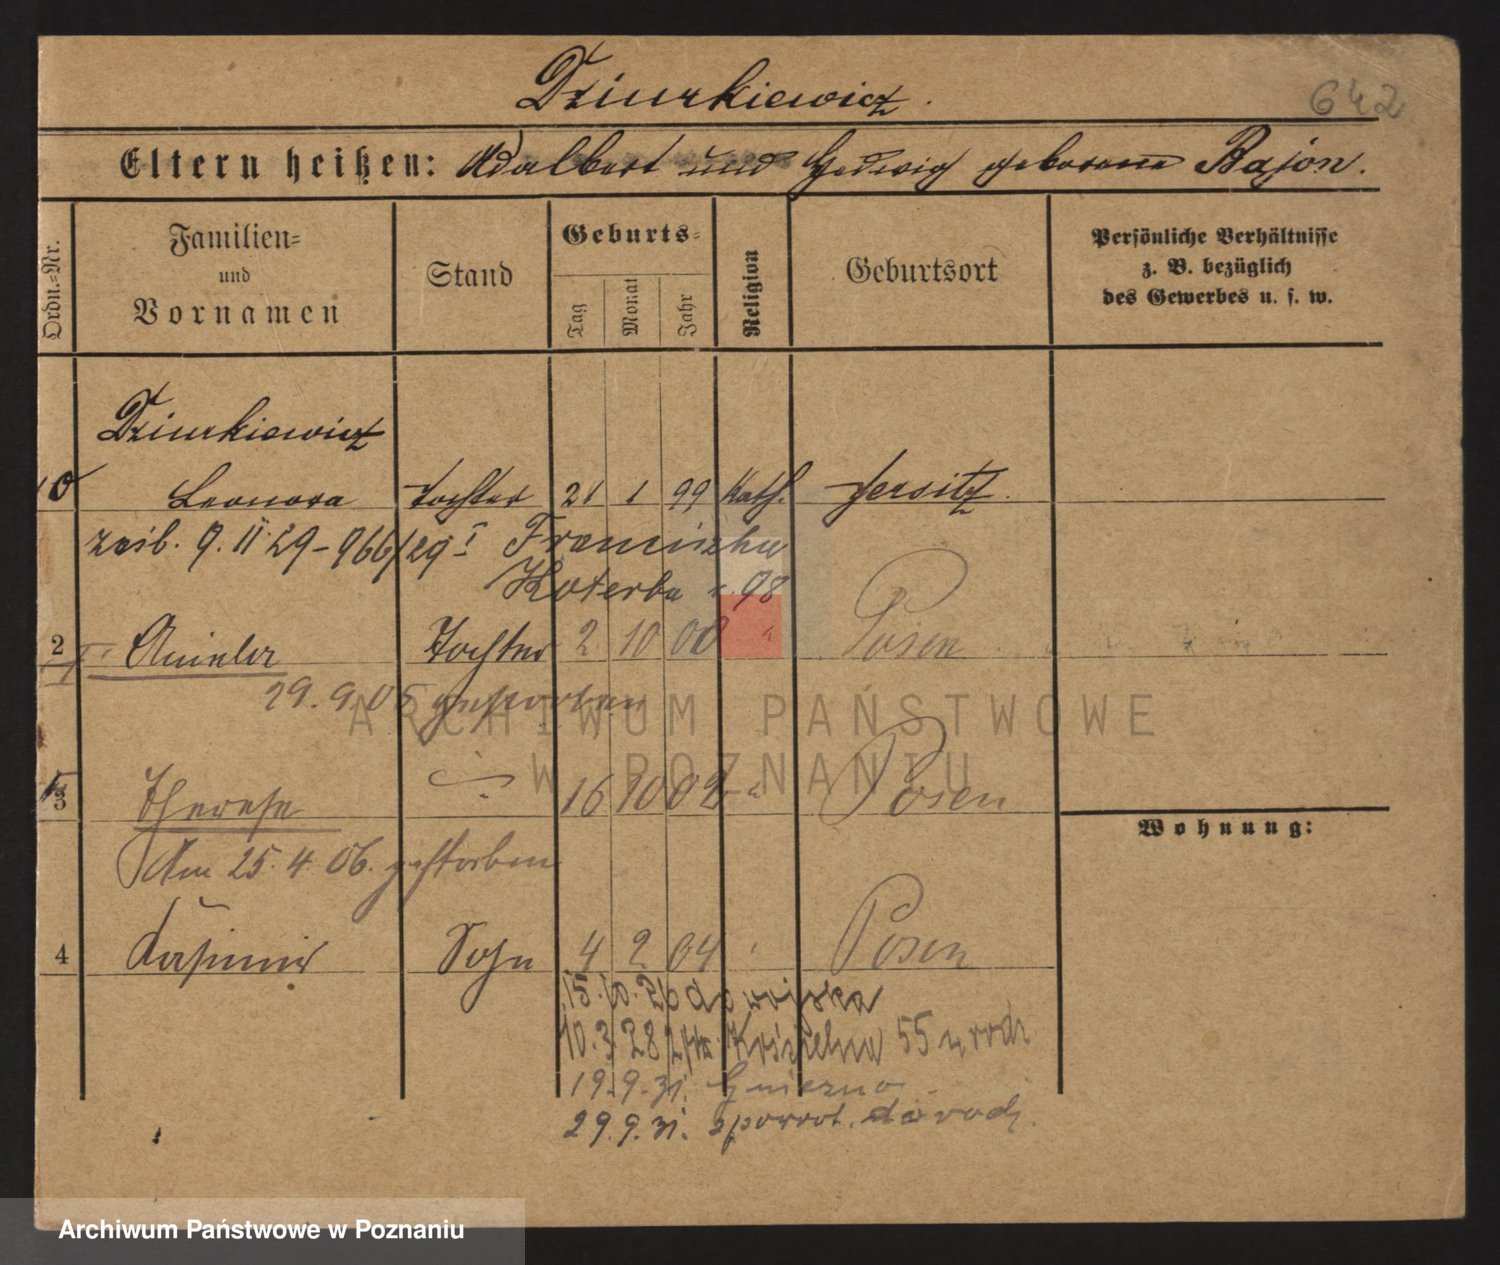 Dziurkiewicz.
642
Eltern heißen: Adalbert und Hedwig geborene Bajon.
Ordn.-Nr.
Familien- und Vornamen
Stand
Geburts-
Tag
Monat
Jahr
Religion
Geburtsort
Persönliche Verhältnisse
z. B. bezüglich
des Gewerbes u. s. w.
Dziurkiewicz
Leonora Tochter 21 1 99 Kath. Jersitz.
9. II 29 - 966/29 Franciszka
Koterba 98
2 Tochter 2 10 00 " Posen
29. 9. 05 gestorben
3 Therese 16 10 02 " Posen
Wohnung:
Am 25. 4. 06. gestorben
4 Kasimir Sohn 4 2 04 Posen
15. 10. 26 do wojska
10. 3. 28 Kościelna 55 u rodz
19. 9. 31. Gniezno
29. 9. 31. z powrot. do rodz.
ARCHIWUM PAŃSTWOWE
W POZNANIU
Archiwum Państwowe w Poznaniu